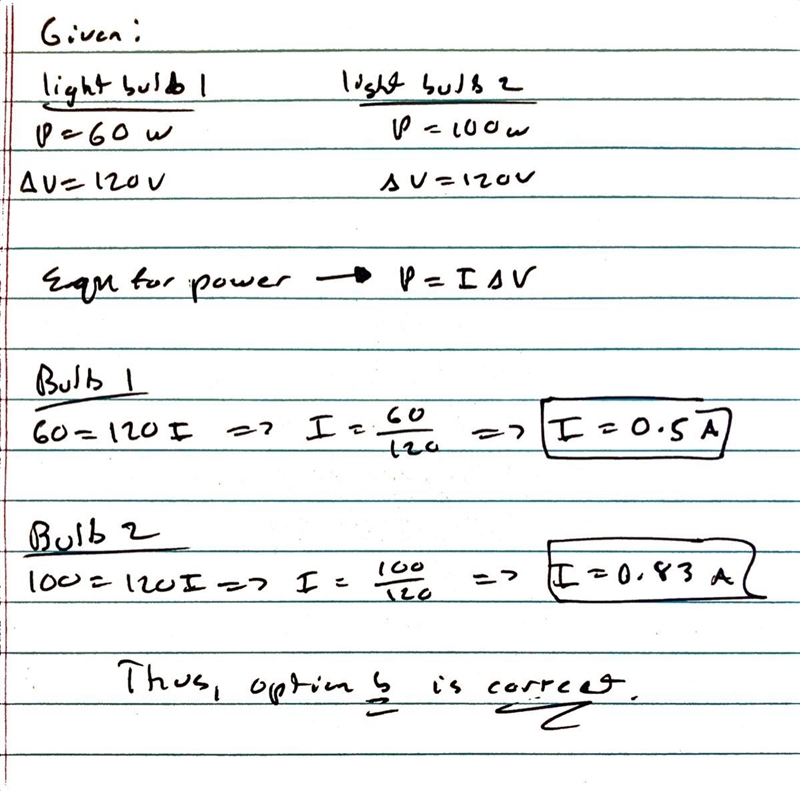 Given:
light bulb 1 light bulb 2
P = 60 w P = 100 w
ΔV = 120 V ΔV = 120V
Eqn for power → P = I ΔV
Bulb 1
60 = 120 I => I = 60/120 => I = 0.5 A
Bulb 2
100 = 120 I => I = 100/120 => I = 0.83 A
Thus, option b is correct.